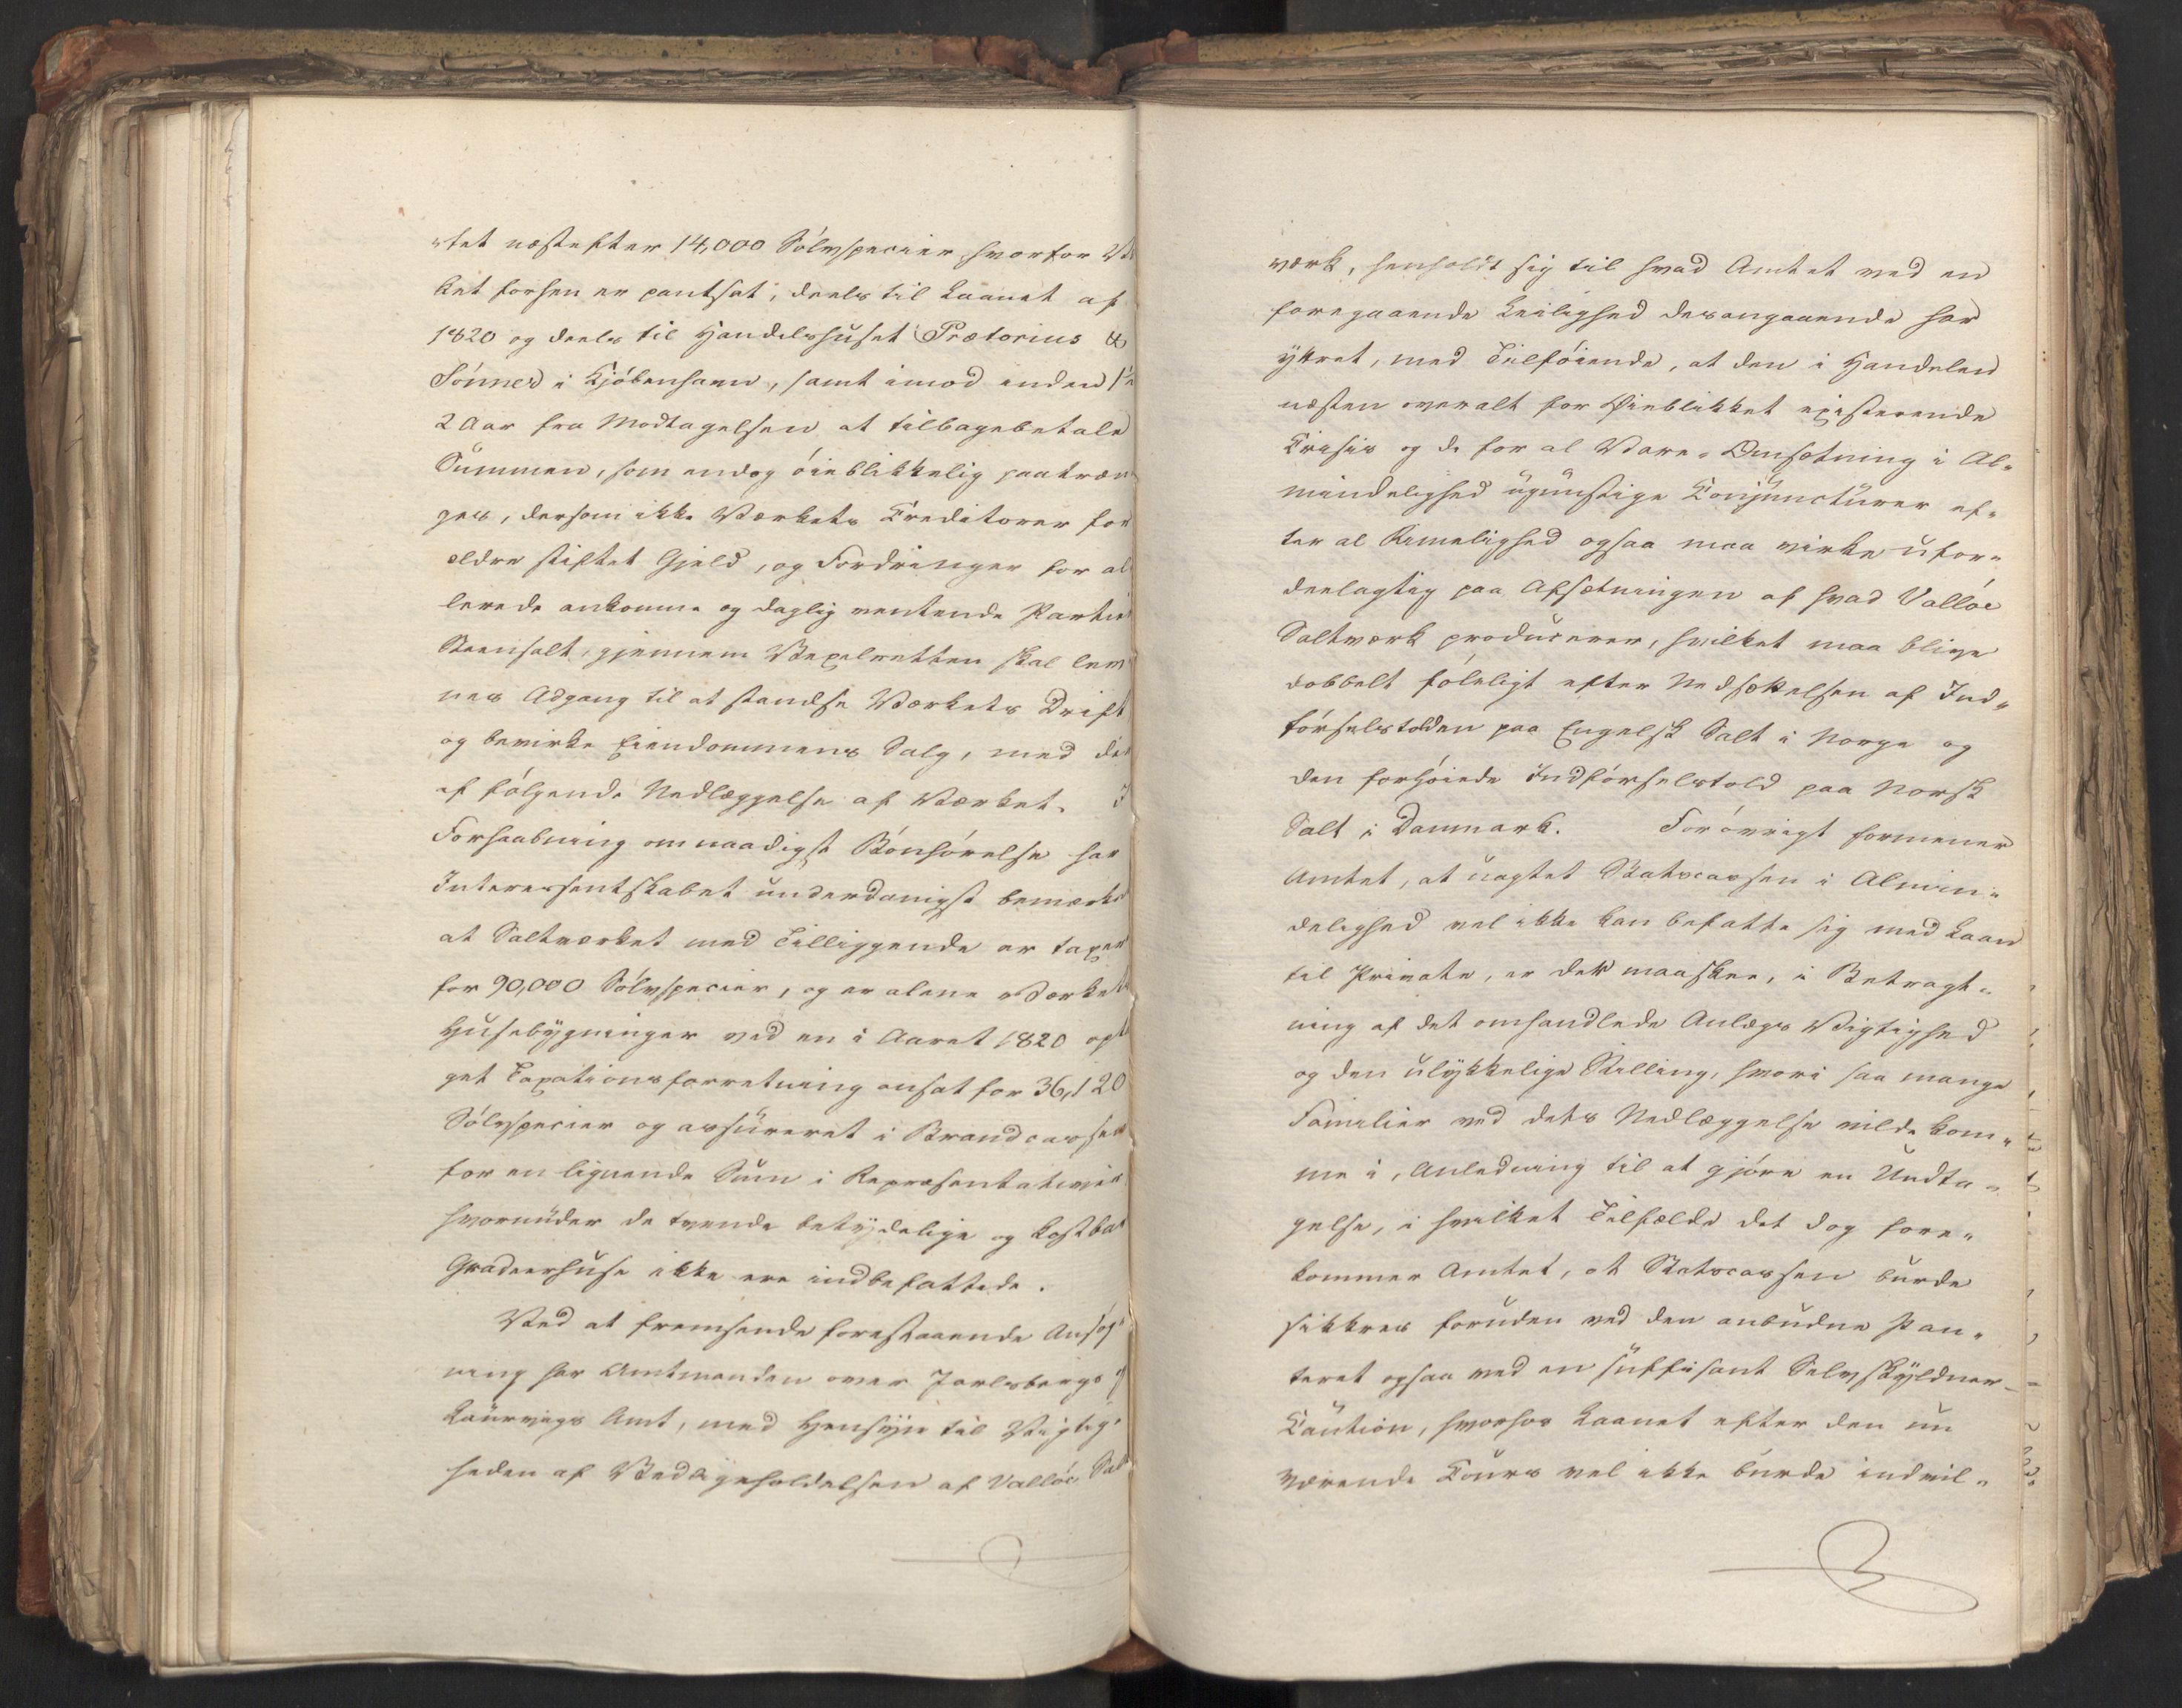 stet næstefter 14,000 Sølvspecier hvorfor Vær
ket forhen er pantsat, deels til Laanet af
1820 og deels til Handelshuset Prætorius &
Sønner i Kjøbenhavn, samt imod inden 1 à
2 Aar fra Modtagelsen at tilbagebetale
Summen, som endog øieblikkelig paatræn
ges, dersom ikke Værkets Creditorer for
ældre stiftet Gjeld, og Fordringer for al
lerede ankomne og daglig ventende Partier
Steensalt, gjennem Vexelretten skal lev
nes Adgang til at standse Værkets Drift
og bevirke Eiendommens Salg, med der
af følgende Nedlæggelse af Værket. I
Forhaabning om naadigst Bønhørelse har
Interessentskabet underdanigst bemærket
at Saltværket med Tilliggende er taxeret
for 90,000 Sølvspecier, og er alene Værkets
Husebygninger ved en i Aaret 1820 opta
get Taxationsforretning ansat for 36,120
Sølvspecier og assureret i Brandcassen
for en lignende Sum i Repræsentativer
hvorunder de tvende betydelige og kostbare
Gradeerhuse ikke ere indbefattede.
Ved at fremsende forestaaende Ansøg-
ning har Amtmanden over Jarlsbergs og
Laurvigs Amt, med Hensyn til Vigtig-
heden af Vedligeholdelsen af Valløe Salt
værk, henholdt sig til hvad Amtet ved en
foregaaende Leilighed desangaaende har
yttret, med Tilføiende, at den i Handelen
næsten overalt for Øieblikket existerende
Crisis og de for al Vare-Omsætning i Al-
mindelighed ugunstige Conjuncturer ef-
ter al Rimelighed ogsaa maa virke ufor-
deelagtig paa Afsætningen af hvad Valløe
Saltværk producerer, hvilket maa blive
dobbelt føleligt efter Nedsættelsen af Ind-
førselstolden paa Engelsk Salt i Norge og
den forhøiede Indførselstold paa Norsk
Salt i Danmark. Forøvrigt formener
Amtet, at uagtet Statscassen i Almin-
delighed vel ikke kan befatte sig med Laan
til Private, er der maaskee, i Betragt-
ning af det omhandlede Anlægs Vigtighed
og den ulykkelige Stilling, hvori saa mange
Familier ved dets Nedlæggelse vilde kom-
me i, Anledning til at gjøre en Undta-
gelse, i hvilket Tilfælde det dog fore-
kommer Amtet, at Statscassen burde
sikkres foruden ved den anbudne Pan-
teret ogsaa ved en suffisant Selvskyldner-
Caution, hvorhos Laanet efter den nu
værende Cours vel ikke burde indvil-